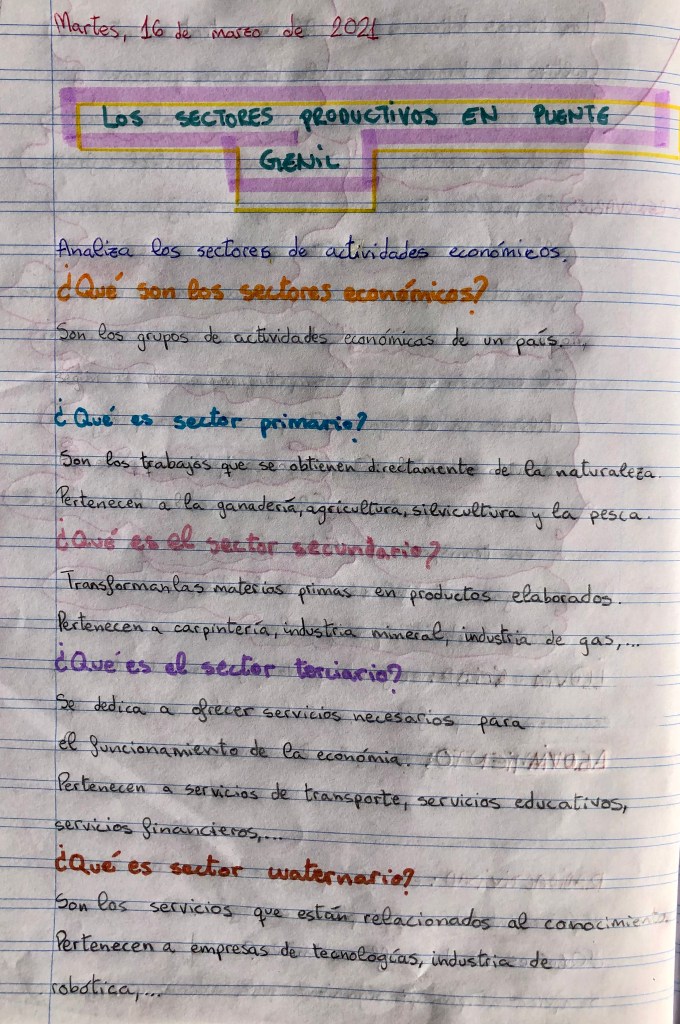 Martes, 16 de marzo de 2021
LOS SECTORES PRODUCTIVOS EN PUENTE
GENIL
Analiza los sectores de actividades económicos.
¿Qué son los sectores económicos?
Son los grupos de actividades económicas de un país.
¿Qué es sector primario?
Son los trabajos que se obtienen directamente de la naturaleza.
Pertenecen a la ganadería, agricultura, silvicultura y la pesca.
¿Qué es el sector secundario?
Transforman las materias primas en productos elaborados.
Pertenecen a carpintería, industria mineral, industria de gas,...
¿Qué es el sector terciario?
Se dedica a ofrecer servicios necesarios para
el funcionamiento de la económia.
Pertenecen a servicios de transporte, servicios educativos,
servicios financieros,...
¿Qué es sector waternario?
Son los servicios que están relacionados al conocimiento.
Pertenecen a empresas de tecnologías, industria de
robótica,...